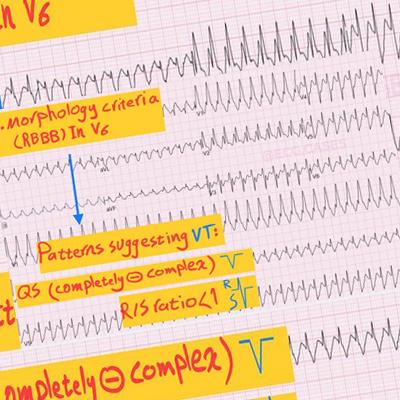 In V6
. morphology criteria
(RBBB) In V6
Patterns suggesting VT:
QS (completely ⊖ complex)
R/S ratio<1 R
S
ompletely ⊖ complex)